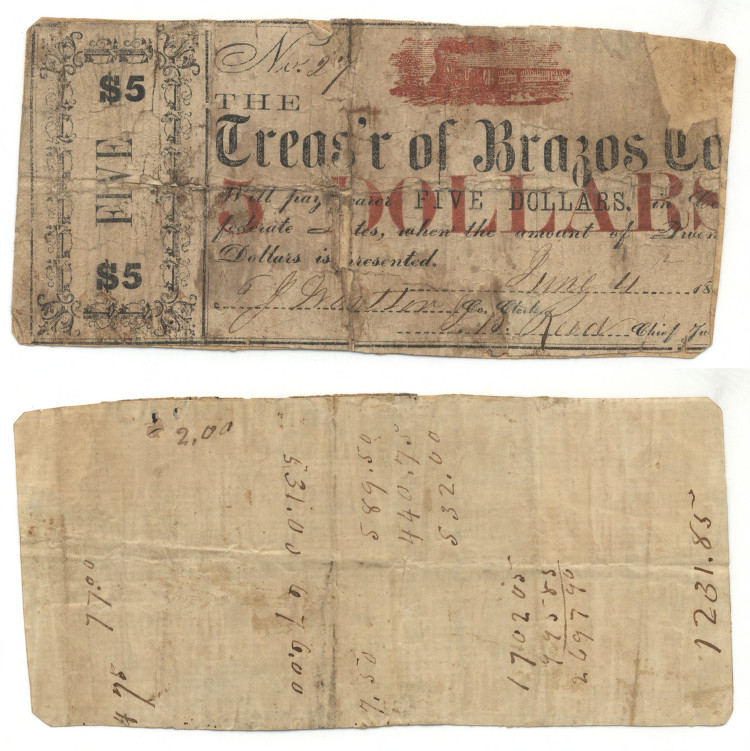 $5
FIVE
$5
No. 27
THE
Treas'r of Brazos Co
5 DOLLARS
Will pay bearer FIVE DOLLARS, in Co
federate Notes, when the amount of Twen
Dollars is presented.
June 4 18
Co. Clerk
Chief Ju
2.00
77.00
531.00 676.00
589.50
440.75
532.00
7.50
170205
99585
269790
1231.85